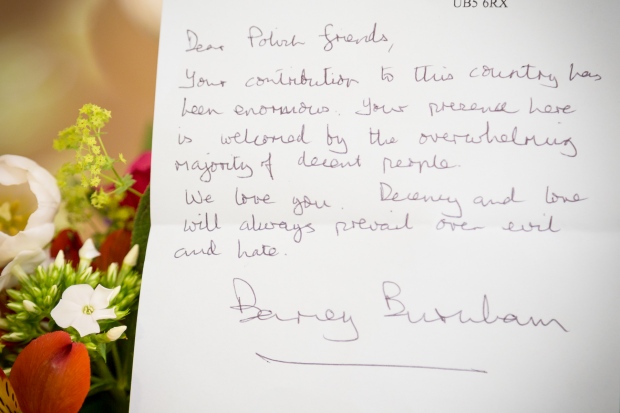 UB5 6RX
Dear Polish friends,
Your contribution to this country has
been enormous. Your presence here
is welcomed by the overwhelming
majority of decent people.
We love you. Decency and love
will always prevail over evil
and hate.
Barney Burnham